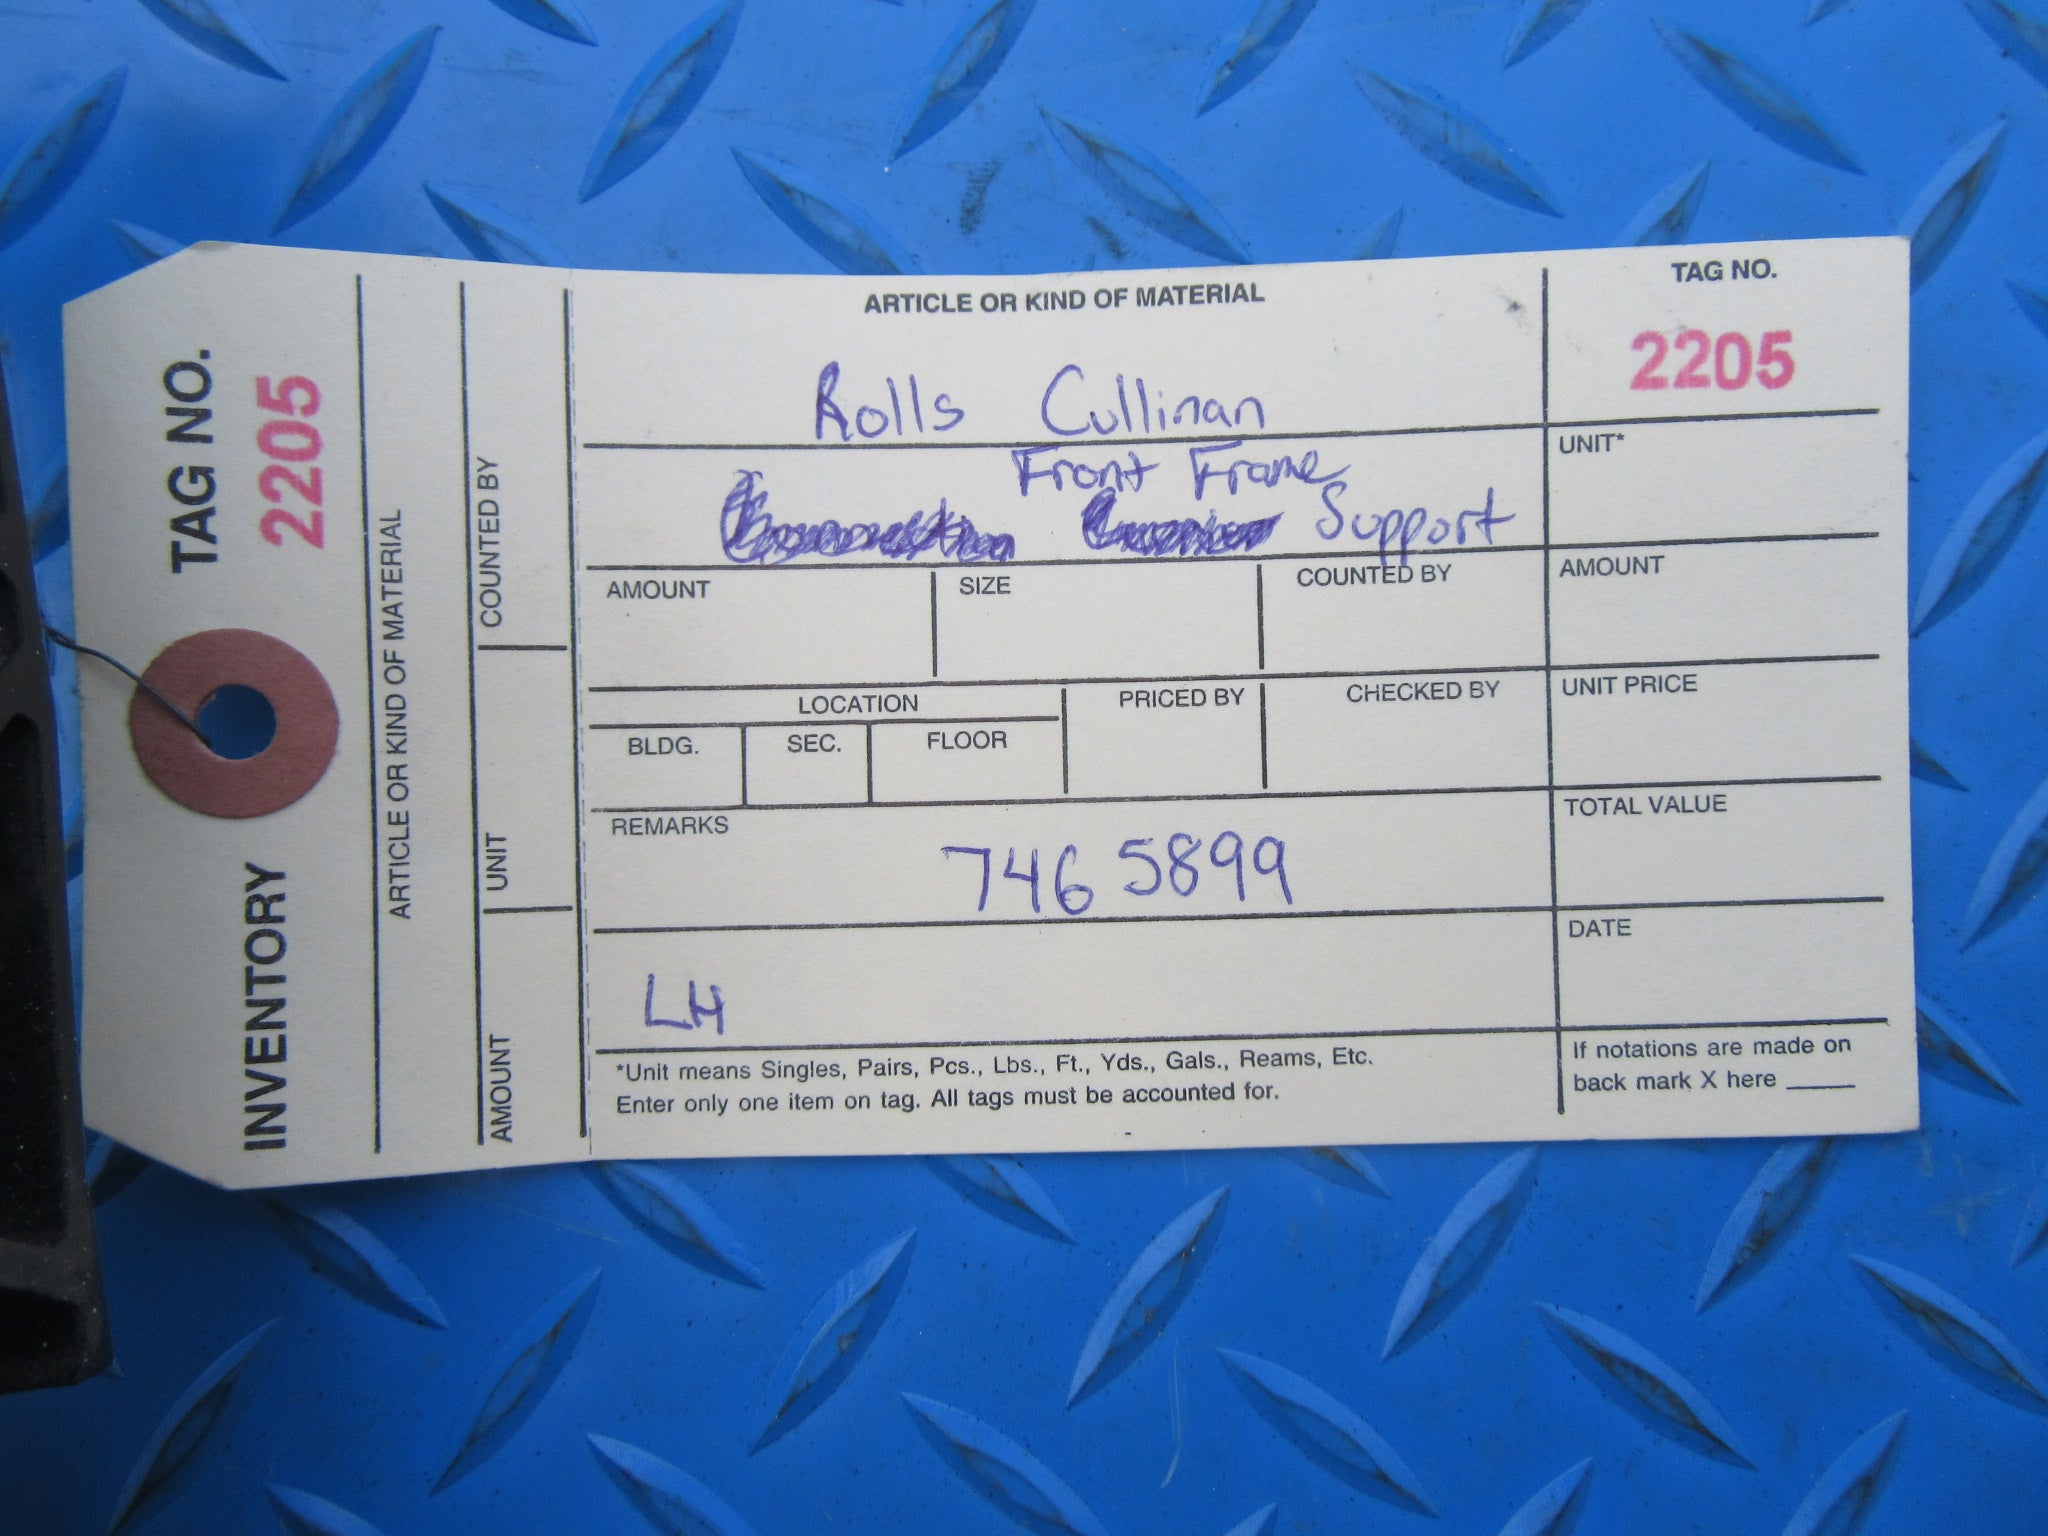 TAG NO.
2205
INVENTORY
ARTICLE OR KIND OF MATERIAL
COUNTED BY
UNIT
AMOUNT
ARTICLE OR KIND OF MATERIAL
Rolls Cullinan
Front Frame
Support
AMOUNT SIZE COUNTED BY
LOCATION PRICED BY CHECKED BY
BLDG. SEC. FLOOR
REMARKS
746 5899
LH
*Unit means Singles, Pairs, Pcs., Lbs., Ft., Yds., Gals., Reams, Etc.
Enter only one item on tag. All tags must be accounted for.
TAG NO.
2205
UNIT*
AMOUNT
UNIT PRICE
TOTAL VALUE
DATE
If notations are made on
back mark X here _____